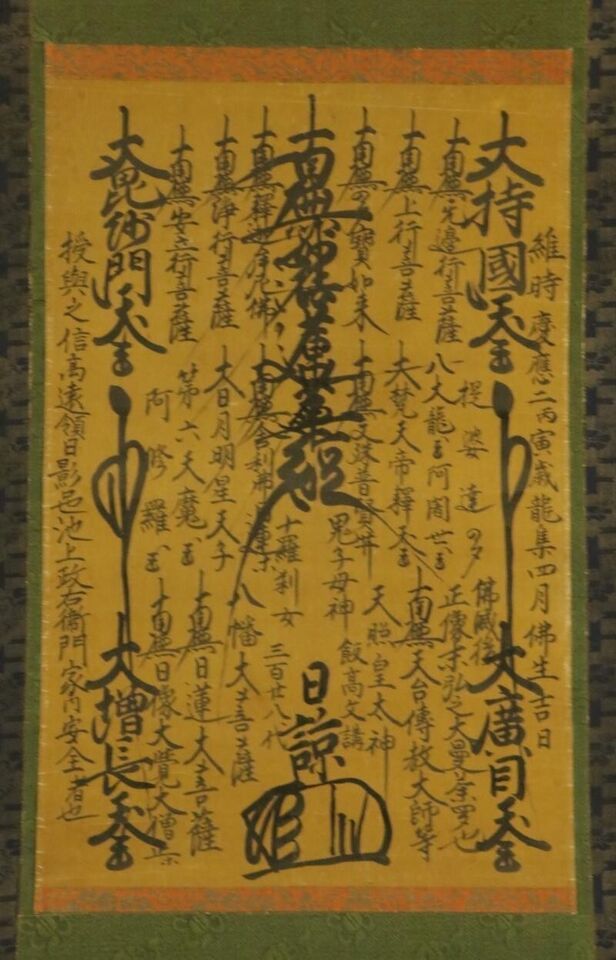 維時慶應二丙寅歳龍集四月佛生吉日
大持國天王
大廣目天王
南無無邊行菩薩
南無上行菩薩
南無多寶如来
南無妙法蓮華経
南無釋迦牟尼佛
南無浄行菩薩
南無安立行菩薩
大毘沙門天王
提婆達多
八大龍王阿闍世王
大梵天帝釋天王
南無文殊普賢菩薩
南無舎利弗
大日月明星天子
第六天魔王
阿修羅王
佛滅後
正像未弘之大曼荼羅也
南無天台傳教大師等
天照皇太神
鬼子母神
十羅刹女
八幡大菩薩
南無日蓮大菩薩
南無日像大覚大僧
飯高文講
三百廿八代
日諒
大増長天王
授與之信高遠領日影邑池上政右衛門家内安全者也